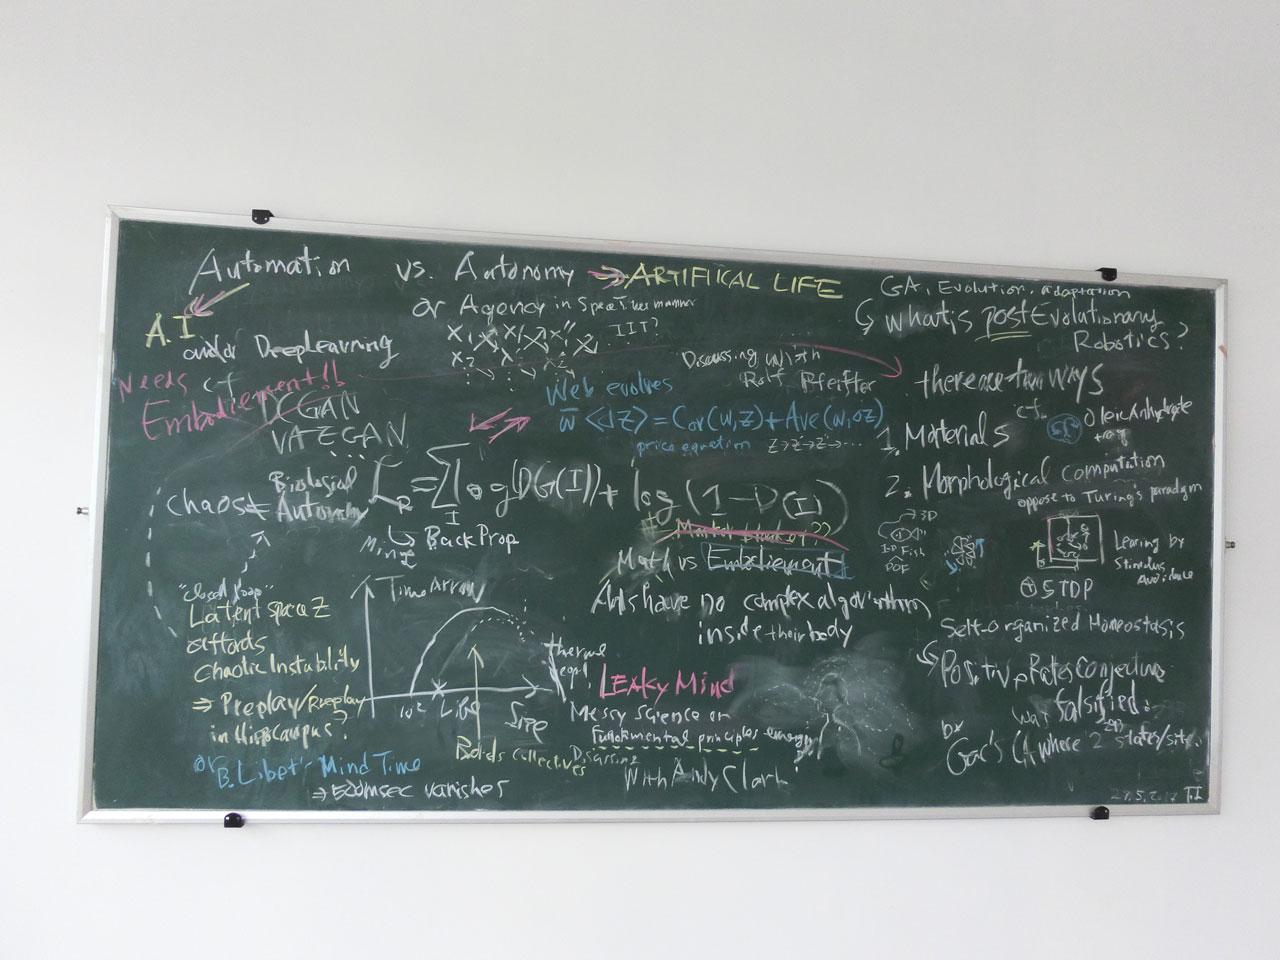 Automation vs. Autonomy ⇒ ARTIFICAL LIFE
or Agency in Space Times manner
A.I
and/or DeepLearning
Needs
Embodiement!!
cf
DCGAN
VAEGAN
.....
X1, X1
X2
III?
Discussing with
Rolf Pfeifter
Web evolves
w̄ <dz> = Cov(w,z) + Ave(w,dz)
price equation z→z'→z''→...
Biological
chaos = Autonomy
L_R = Σ_I log(DG(I)) + log(1-D(I))
↳ BackProp
Math vs Embodiement
Ants have no complex algorithm
inside their body
"closed loop"
Latent space Z
affords
Chaotic Instability
⇒ Preplay/Replay
in Hippocampus?
or B. Libet's Mind Time
⇒ 500msec vanishes
Time Arrow
10²
Life
Size
Boids collectives
LEAKY MIND
Messy Science or
Fundamental principles
Discussing
with Andy Clark
GA, Evolution, adaptation
↳ what is post Evolutionary
Robotics?
there are two ways
1. Materials cf. Oleic Anhydrate
2. Morphological computation
oppose to Turing's paradigm
3D
Fish
DOF
Learning by
Stimulus
Avoidance
STDP
Self-organized Homeostasis
↳ Positive Rates Conjecture
was falsified.
by
Gac's CA where 2 states/site
T.I